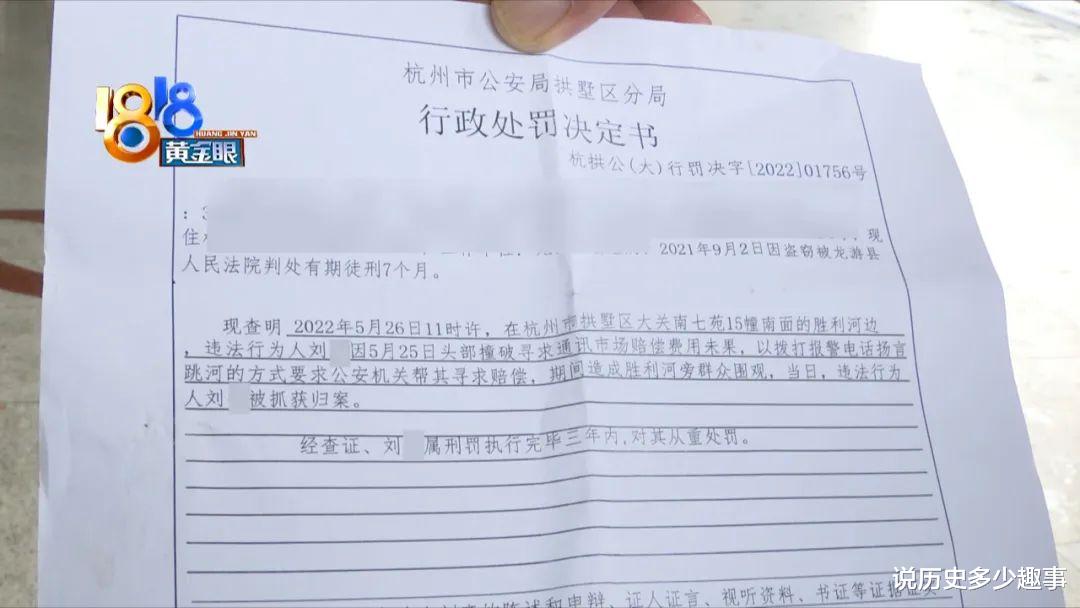 1818
HUANG JIN YAN
黄金眼
杭州市公安局拱墅区分局
行政处罚决定书
杭拱公(大)行罚决字[2022]01756号
住
现
2021年9月2日因盗窃被龙游县
人民法院判处有期徒刑7个月。
现查明 2022年5月26日11时许，在杭州市拱墅区大关南七苑15幢南面的胜利河边
，违法行为人刘 因5月25日头部撞破寻求通讯市场赔偿费用未果，以拨打报警电话扬言
跳河的方式要求公安机关帮其寻求赔偿，期间造成胜利河旁群众围观，当日，违法行为
人刘 被抓获归案。
经查证、刘 属刑罚执行完毕三年内,对其从重处罚。
的陈述和申辩、证人证言、视听资料、书证等证据证实
说历史多少趣事